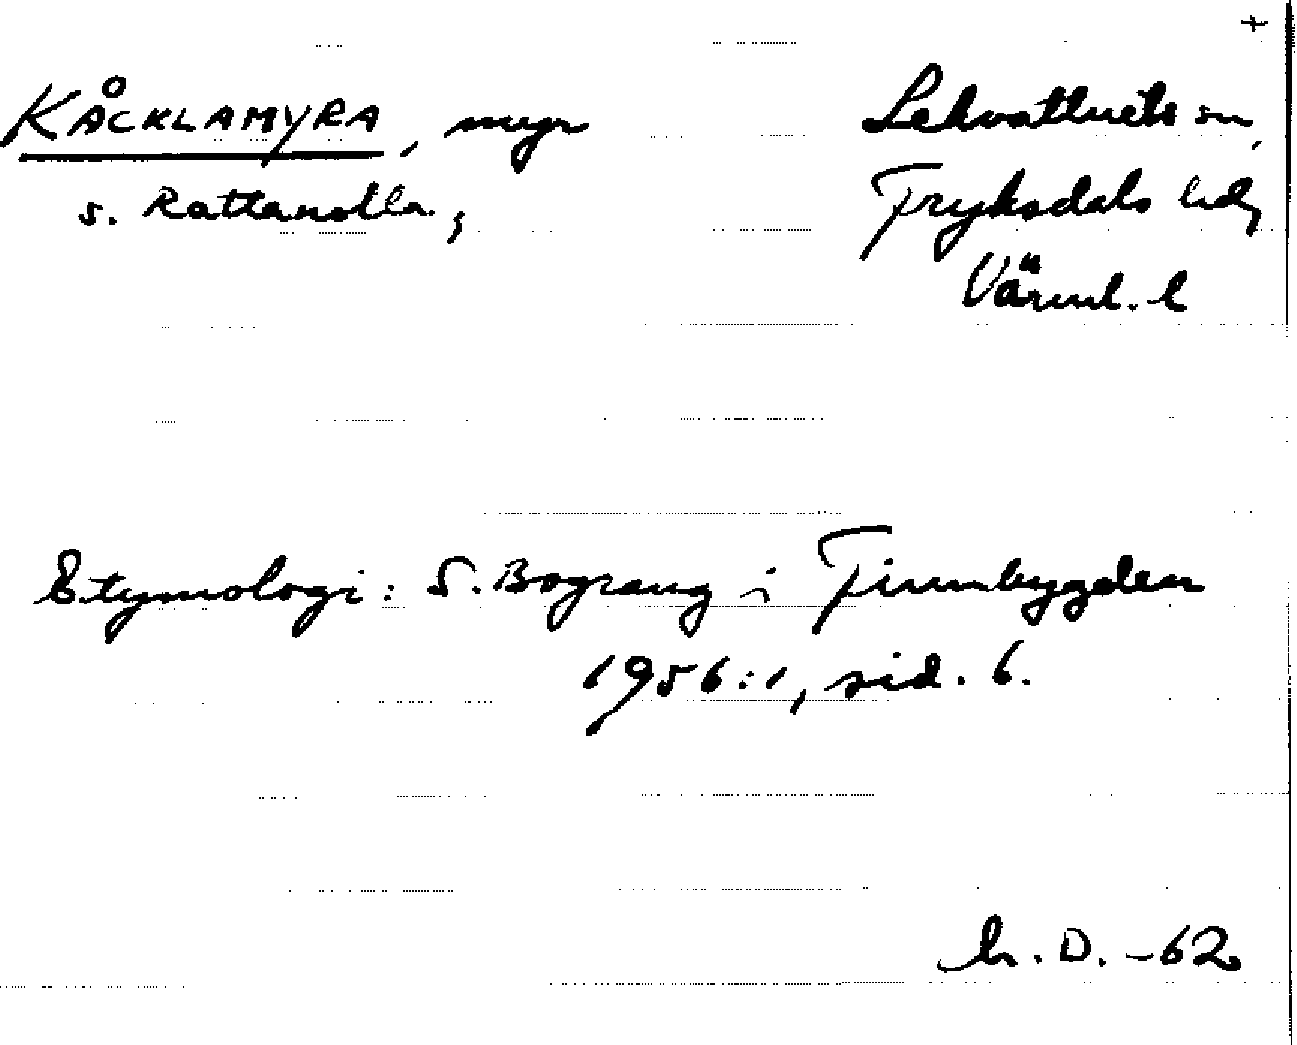 KÅCKLAMYRA, myr
s. Rattanolla,
Lekvattnets sn,
Fryksdals hd,
Värml. l
Etymologi: S. Bograng i Finnbygden
1956:1, sid. 6.
D. -62